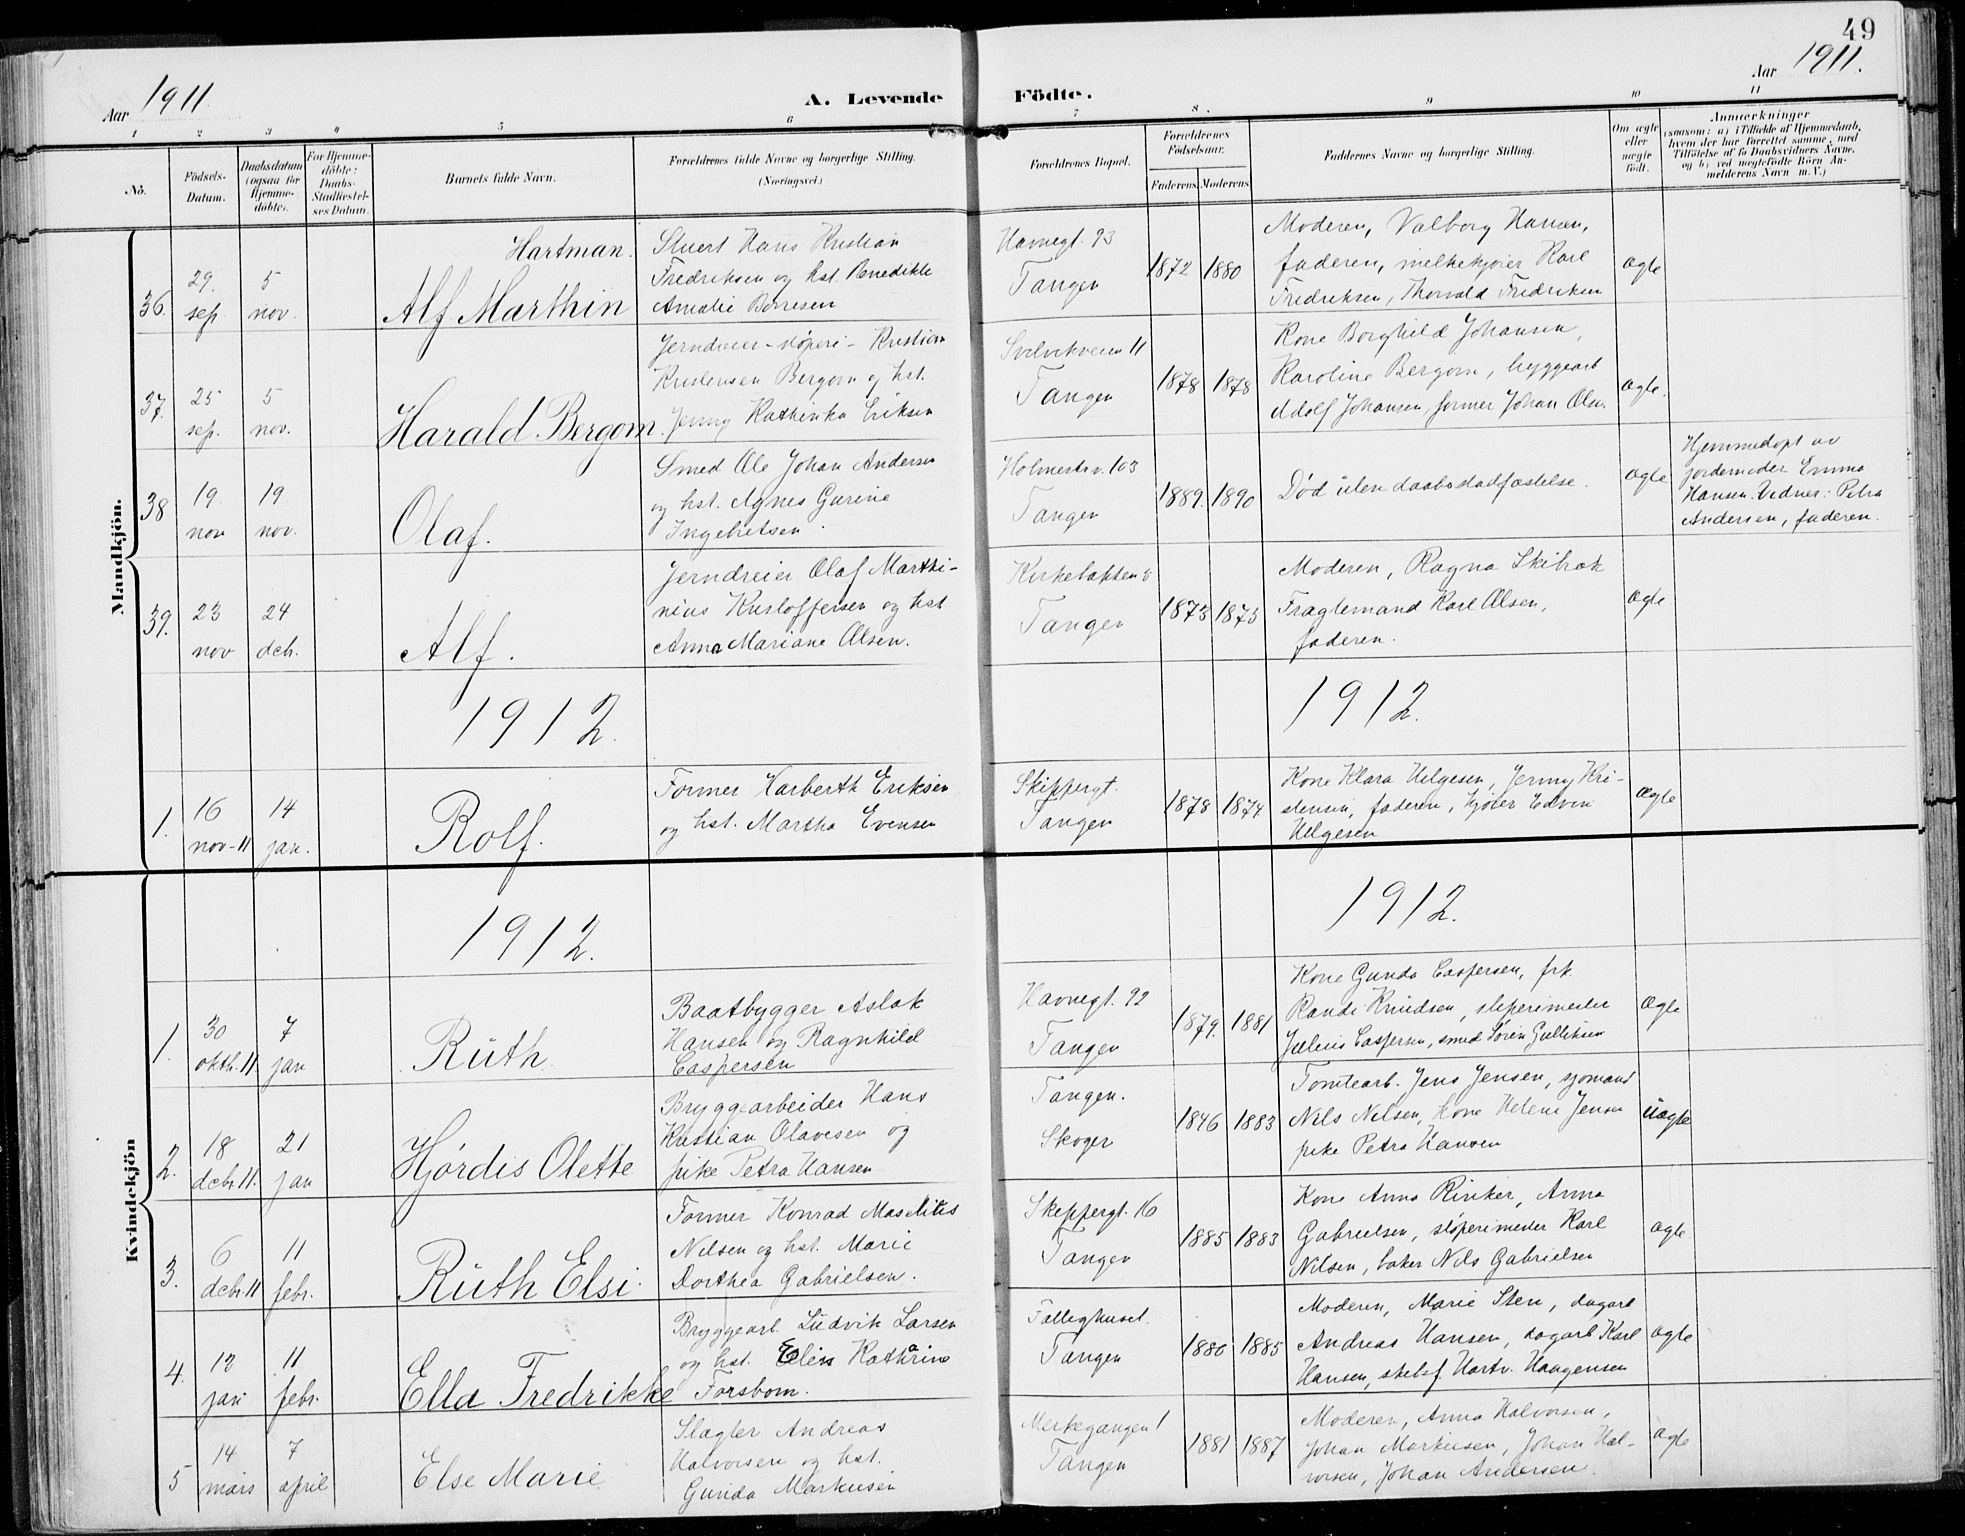 49
Aar 1911
A. Levende Födte.
Aar 1911.
1 2 3 4 5 6 7 8. 9 10 11
No.
Födsels-
Datum.
Daabsdatum
(ogsaa for
Hjemme-
döbte).
For Hjemme-
döbte:
Daabs-
Stadfæstel-
ses Datum.
Barnets fulde Navn.
Forældrenes fulde Navne og borgerlige Stilling.
(Næringsvei.)
Forældrenes Bopæl.
Forældrenes
Födselsaar.
Faderens. Moderens.
Faddernes Navne og borgerlige Stilling.
Om ægte
eller
uægte
födt.
Anmærkninger
(saasom: a) i Tilfælde af Hjemmedaab,
hvem der har forrettet samme, med
Tilföielse af to Daabsvidners Navne,
og b) ved uægtefödte Börn An-
melderens Navn m. V.)
Mandkjön.
36.
29.
sep.
5
nov.
Hartman.
Alf Marthin
Stuert Hans Kristian
Fredriksen og hst. Benedikte
Amalie Borresen
Havnegt. 93
Tangen
1872 1880
Moderen, Valborg Hansen,
faderen, melkekjører Karl
Fredriksen, Thorvald Fredriksen
ægte
37.
25
sep.
5
nov.
Harald Bergom.
Jerndreier-støperi- Kristian
Kristensen Bergom og hst.
Jenny Kathinka Eriksen
Svelvikveien 11
Tangen
1878 1878
Kone Borghild Johansen,
Karoline Bergom, bryggearb
Adolf Johansen, former Johan Olsen
ægte.
38
19.
nov
19
nov.
Olaf.
Smed Ole Johan Andersen
og hst. Agnes Gurine
Ingebretsen.
Holmestrv. 103
Tangen
1889. 1890
Død uten daabsstadfæstelse.
ægte
Hjemmedøpt av
jordemoder Emma
Hansen. Vidner: Petra
Andersen, faderen.
39.
23
nov
24
dcb.
Alf.
Jerndreier Olaf Marthi-
nius Kristoffersen og hst
Anna Mariane Olsen.
Kirkebakken 8
Tangen
1873 1873
Moderen, Ragna Skibrek
Fragtemand Karl Olsen,
faderen.
ægte
1912.
1912.
1.
16
nov-11
14
jan.
Rolf.
Former Harberth Eriksen
og hst. Martha Evensen
Skippergt.
Tangen
1878 1874
Kone Klara Helgesen, Jenny Kri-
stensen, faderen, kjører Edvin
Helgesen
ægte
Kvindekjön
1912.
1912.
1.
30
oktb. 11
7
jan
Ruth
Baatbygger Aslak
Hansen og Ragnhild
Caspersen
Havnegt. 92
Tangen
1879. 1881
Kone Gunda Caspersen, frk.
Randi Knudsen, støperimester
Julius Caspersen, smed Søren Gulliksen
ægte
2.
18
dcbr. 11.
21
jan
Hjørdis Olette
Bryggearbeider Hans
Kristian Olavesen og
pike Petra Hansen
Tangen.
Skoger
1846 1883
Tomtearb. Jens Jensen, sjømand
Nils Nilsen, kone Helene Jensen
pike Petra Hansen
uægte
3.
6
dcbr. 11
11
febr.
Ruth Elsi.
Former Konrad Maselius
Nilsen og hst. Marie
Dorthea Gabrielsen.
Skippergt. 16
Tangen
1885 1883
Kone Anna Rinker, Anna
Gabrielsen, støperimester Karl
Nilsen, baker Nils Gabrielsen
ægte
4.
12
jan
11
febr.
Ella Fredrikke
Bryggearb. Ludvik Larsen
og hst. Elen Kathrine
Forsbom.
Fattighuset.
Tangen
1880 1885
Moderen, Marie Sten, dagarb
Andreas Hansen, dagarb Karl
Hansen, Hartv. Haagensen
ægte
5
14
mars
7
april
Else Marie
Slagter Andreas
Halvorsen og hst.
Gunda Markusen
Merkegangen 1
Tangen
1881 1887
Moderen, Anna Halvorsen,
Johan Markusen, Johan Hal-
vorsen, Johan Andersen.
ægte